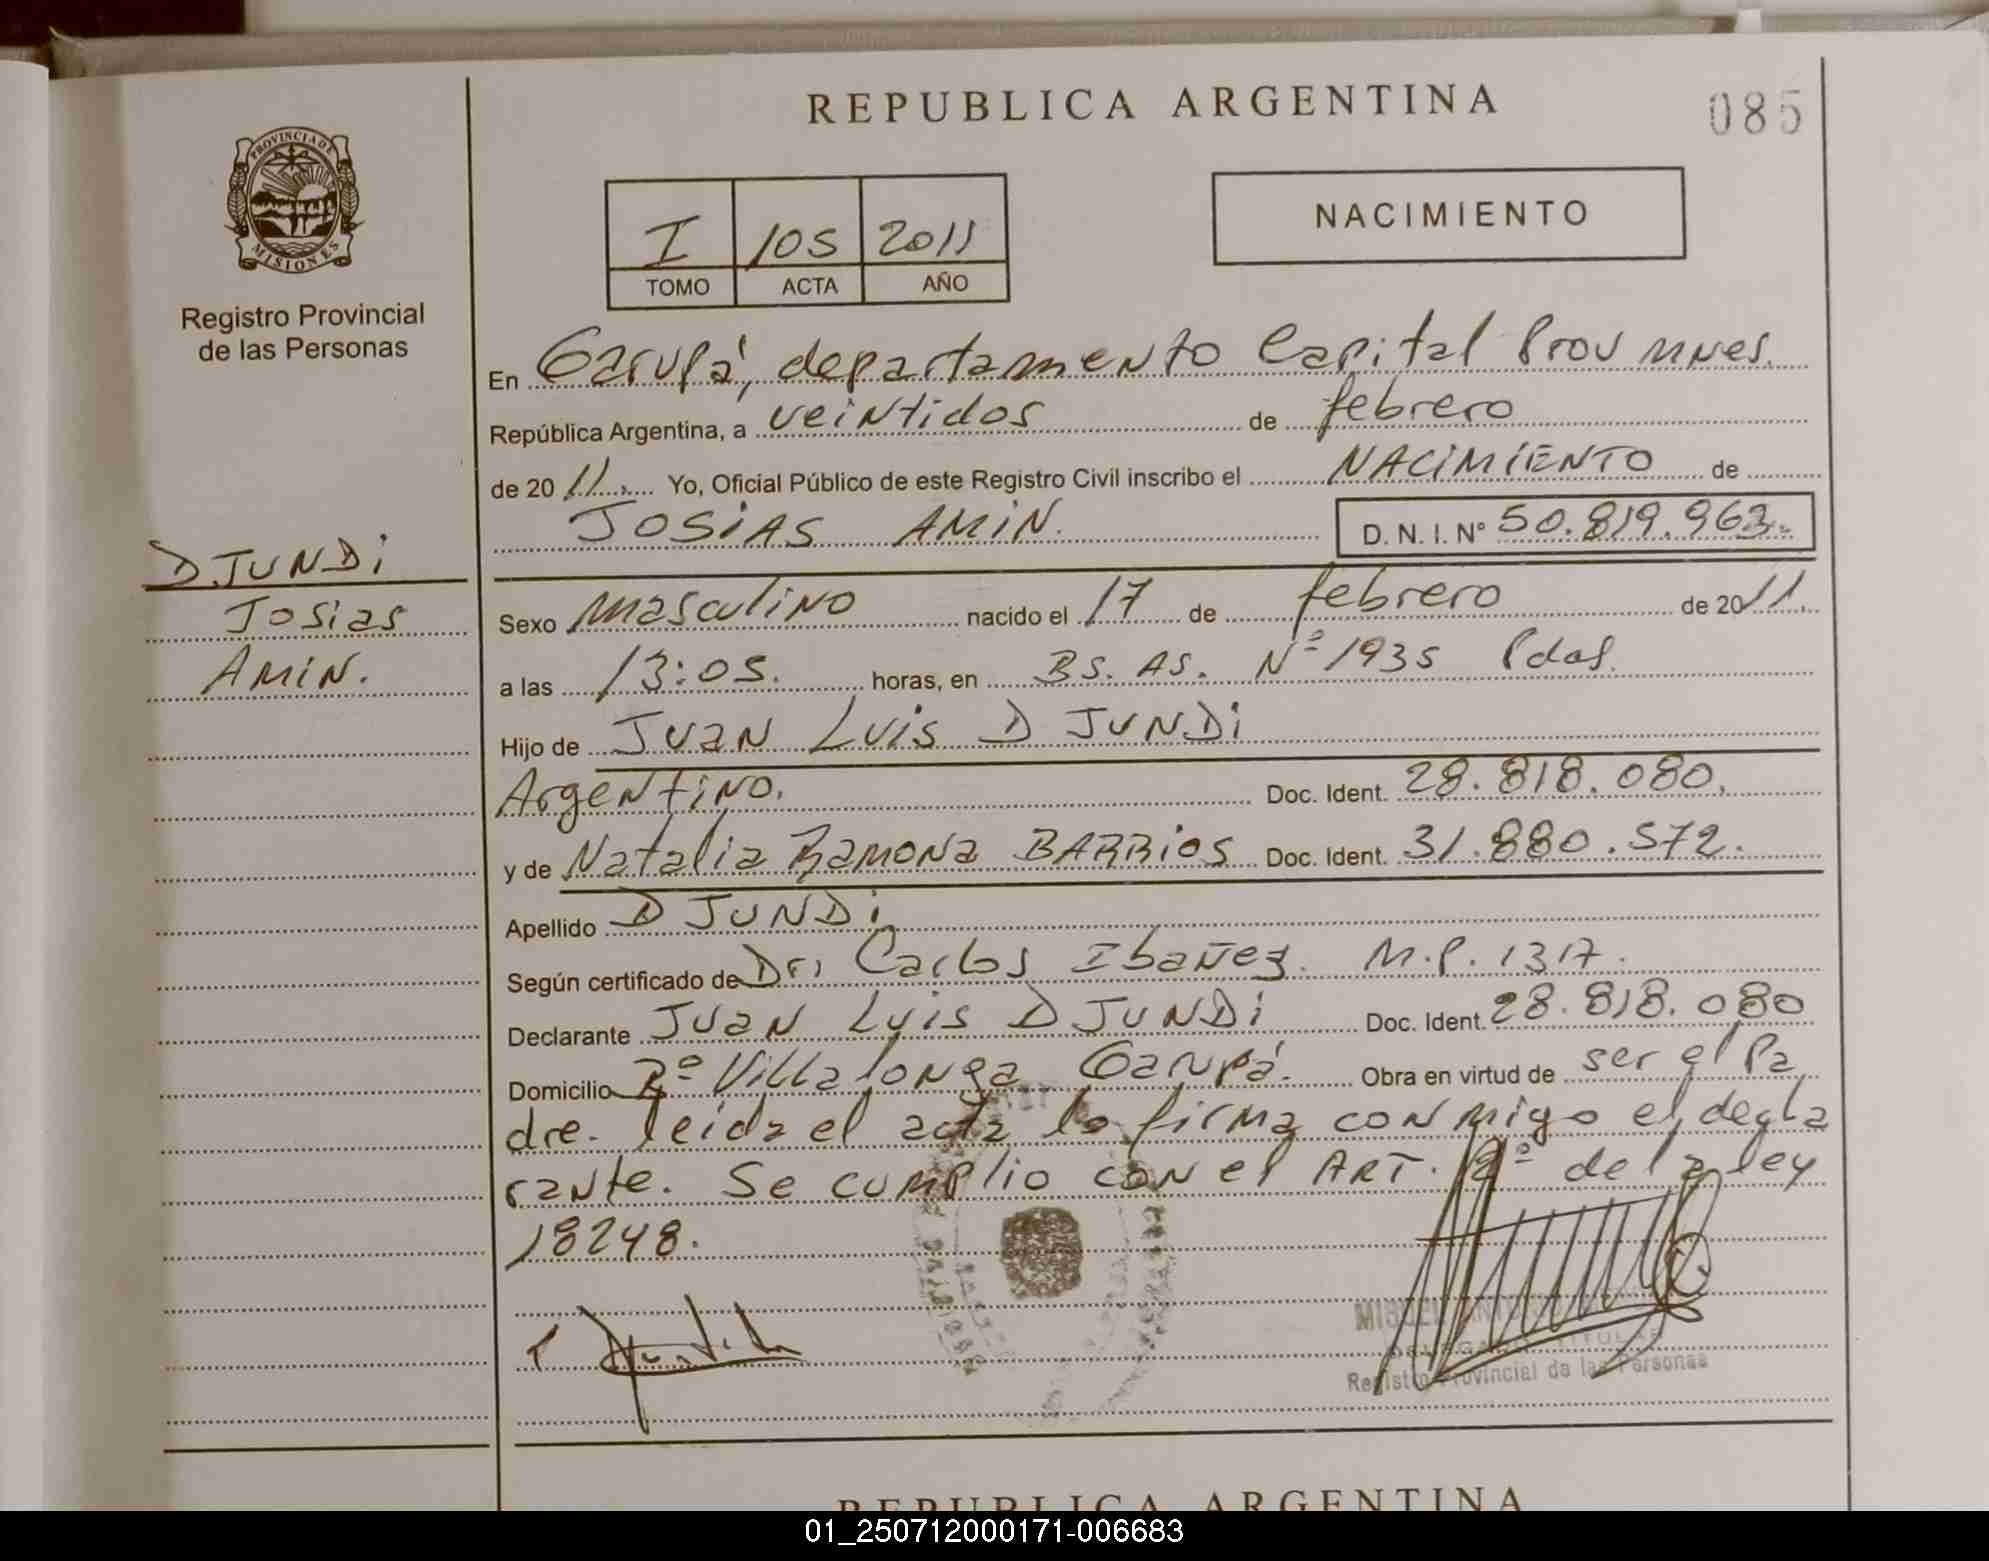 REPUBLICA ARGENTINA
085
PROVINCIA DE
MISIONES
Registro Provincial
de las Personas
I 105 2011
TOMO ACTA AÑO
NACIMIENTO
En Garupá, departamento Capital Prov Mnes.
República Argentina, a veintidos de febrero
de 2011. Yo, Oficial Público de este Registro Civil inscribo el NACIMIENTO de
JOSIAS AMIN. D. N. I. Nº 50.819.963.-
D JUNDi
Josias
AMIN.
Sexo Masculino nacido el 17 de febrero de 2011.
a las 13:05. horas, en Bs. As. Nº 1935 Pdas.
Hijo de Juan Luis D JUNDi
Argentino. Doc. Ident. 28.818.080.
y de Natalia Ramona BARRiOS Doc. Ident. 31.880.572.
Apellido D JUNDi
Según certificado de Dr. Carlos Ibañez. M.P. 1317.
Declarante Juan Luis D JUNDi Doc. Ident. 28.818.080
Domicilio Bº Villalonga Garupá. Obra en virtud de ser el Pa
dre. leida el acta la firma conmigo el decla
rante. Se cumplio con el ART. 2º de la ley
18248.
MIGUEL
Registro Provincial de las Personas
REPUBLICA ARGENTINA
01_250712000171-006683